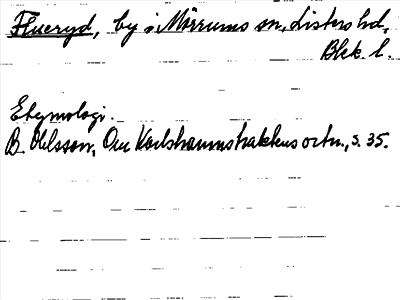 Flueryd, by i Mörrums sn, Listers hd,
Blek. l.
Etymologi.
B. Ohlsson, Om Karlshamnstraktens ortn., s. 35.